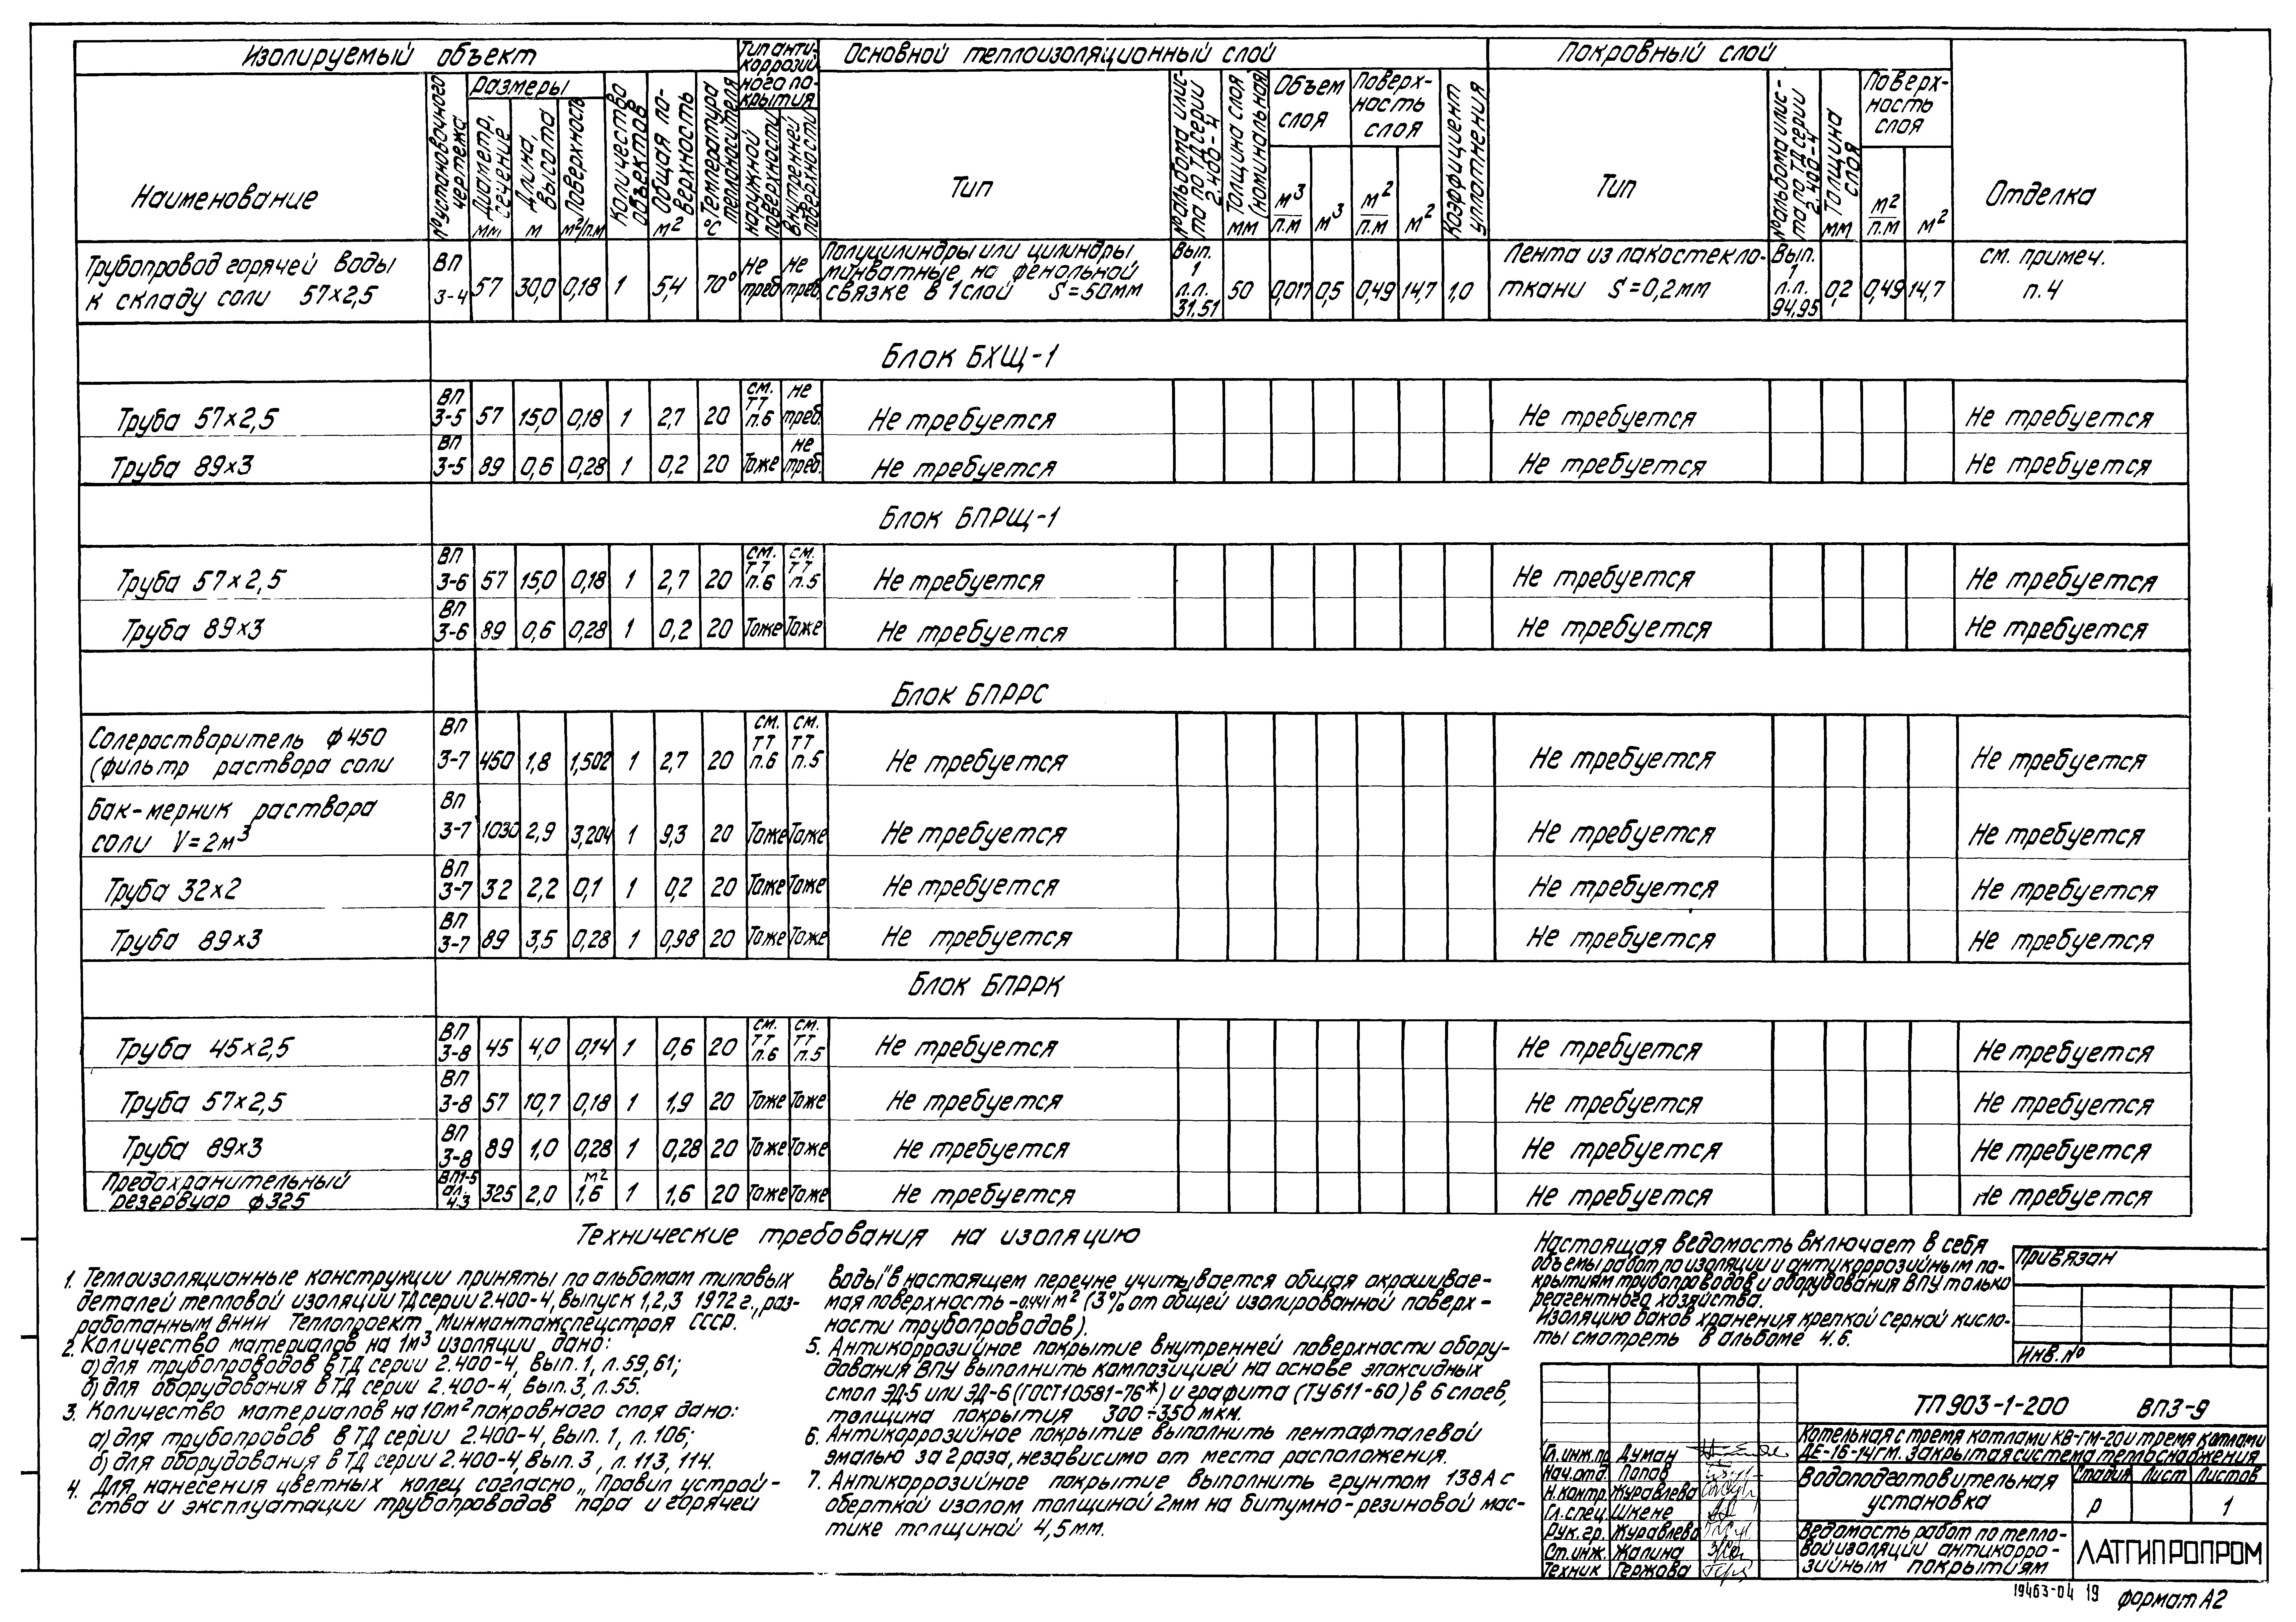 Изолируемый объект
Тип анти-
коррозий
ного по-
крытия
Основной теплоизоляционный слой
Покровный слой
Наименование
№ установочного
чертежа
Размеры
Диаметр,
сечение
мм
Длина,
высота
м
Поверхность
м²/п.м
Количество
объектов
Общая по-
верхность
м²
Температура
теплоносителя
°С
наружной
поверхности
внутренней
поверхности
Тип
№ альбома и лис-
та по ТД серии
2.400-4
Толщина слоя
(номинальная)
мм
Объем
слоя
м³/п.м
м³
Поверх-
ность
слоя
м²/п.м
м²
Коэффициент
уплотнения
Тип
№ альбома и лис-
та по ТД серии
2.400-4
Толщина
слоя
мм
Поверх-
ность
слоя
м²/п.м
м²
Отделка
Трубопровод горячей воды
к складу соли 57×2,5
ВП
3-4
57 30,0 0,18 1 5,4 70°
не
треб
не
треб.
Полуцилиндры или цилиндры
минватные на фенольной
связке в 1 слой S=50мм
Вып.
1
л.л.
31,51
50 0,017 0,5 0,49 14,7 1,0
Лента из лакостекло-
ткани S=0,2мм
Вып.
1
л.л.
94,95
0,2 0,49 14,7
см. примеч.
п.4
Блок БХЩ-1
Труба 57×2,5 ВП 3-5 57 15,0 0,18 1 2,7 20 см. ТТ п.6 не треб. Не требуется Не требуется Не требуется
Труба 89×3 ВП 3-5 89 0,6 0,28 1 0,2 20 Тоже не треб. Не требуется Не требуется Не требуется
Блок БПРЩ-1
Труба 57×2,5 ВП 3-6 57 15,0 0,18 1 2,7 20 см. ТТ п.6 см. ТТ п.5 Не требуется Не требуется Не требуется
Труба 89×3 ВП 3-6 89 0,6 0,28 1 0,2 20 Тоже Тоже Не требуется Не требуется Не требуется
Блок БПРРС
Солерастворитель ф450
(фильтр раствора соли
ВП 3-7 450 1,8 1,502 1 2,7 20 см. ТТ п.6 см. ТТ п.5 Не требуется Не требуется Не требуется
Бак-мерник раствора
соли V=2м³
ВП 3-7 1030 2,9 3,204 1 9,3 20 Тоже Тоже Не требуется Не требуется Не требуется
Труба 32×2 ВП 3-7 32 2,2 0,1 1 0,2 20 Тоже Тоже Не требуется Не требуется Не требуется
Труба 89×3 ВП 3-7 89 3,5 0,28 1 0,98 20 Тоже Тоже Не требуется Не требуется Не требуется
Блок БПРРК
Труба 45×2,5 ВП 3-8 45 4,0 0,14 1 0,6 20 см. ТТ п.6 см. ТТ п.5 Не требуется Не требуется Не требуется
Труба 57×2,5 ВП 3-8 57 10,7 0,18 1 1,9 20 Тоже Тоже Не требуется Не требуется Не требуется
Труба 89×3 ВП 3-8 89 1,0 0,28 1 0,28 20 Тоже Тоже Не требуется Не требуется Не требуется
Предохранительный
резервуар ф325
ВП1-5 ал. 4.3 325 2,0 м² 1,6 1 1,6 20 Тоже Тоже Не требуется Не требуется Не требуется
Технические требования на изоляцию
1. Теплоизоляционные конструкции приняты по альбомам типовых
деталей тепловой изоляции ТД серии 2.400-4, выпуск 1,2,3 1972г., раз-
работанным ВНИИ Теплопроект Минмонтажспецстроя СССР.
2. Количество материалов на 1м³ изоляции дано:
а) для трубопроводов в ТД серии 2.400-4, вып.1, л.59,61;
б) для оборудования в ТД серии 2.400-4, вып.3, л.55.
3. Количество материалов на 10м² покровного слоя дано:
а) для трубопровов в ТД серии 2.400-4, вып. 1, л.106;
б) для оборудования в ТД серии 2.400-4, вып.3, л. 113, 114.
4. Для нанесения цветных колец согласно „Правил устрой-
ства и эксплуатации трубопроводов пара и горячей
воды" в настоящем перечне учитывается общая окрашивае-
мая поверхность -0,441м² (3% от общей изолированной поверх-
ности трубопроводов).
5. Антикоррозийное покрытие внутренней поверхности обору-
дования ВПУ выполнить композицией на основе эпоксидных
смол ЭД-5 или ЭД-6 (ГОСТ 10581-76*) и графита (ТУ 611-60) в 6 слоев,
толщина покрытия 300÷350 мкм.
6. Антикоррозийное покрытие выполнить пентафталевой
эмалью за 2 раза, независимо от места расположения.
7. Антикоррозийное покрытие выполнить грунтом 138А с
оберткой изолом толщиной 2мм на битумно-резиновой мас-
тике толщиной 4,5мм.
Настоящая ведомость включает в себя
объемы работ по изоляции и антикоррозийным по-
крытиям трубопроводов и оборудования ВПУ только
реагентного хозяйства.
Изоляцию баков хранения крепкой серной кисло-
ты смотреть в альбоме 4.6.
Привязан
Инв.№
ТП 903-1-200 ВП3-9
Котельная с тремя котлами КВ-ГМ-20 и тремя котлами
ДЕ-16-14ГМ. Закрытая система теплоснабжения.
Гл.инж.пр Думан
Нач.отд. Попов
Н.контр. Журавлева
Гл.спец. Шнене
Рук.гр. Журавлева
Ст.инж. Жалина
Техник Гержова
Водоподготовительная
установка
Стадия Лист Листов
Р 1
Ведомость работ по тепло-
вой изоляции антикорро-
зийным покрытиям
ЛАТГИПРОПРОМ
19463-04 19 формат А2